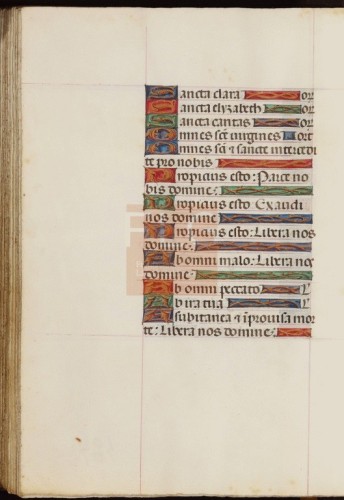 Sancta clara or
Sancta elyzabeth or
Sancta caritas or
Omnes scē virgines ort
Omnes sci & sancte intercedi
te pro nobis
Propicius esto: Parce no
bis domine:
Propicius esto Exaudi
nos domine
Propicius esto: Libera nos
domine:
Ab omni malo: Libera nos
domine:
Ab omni peccato L'
Ab ira tua L'
A subitanea & īprovisa mor
te: Libera nos domine: